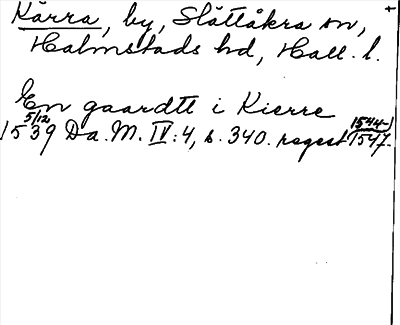 Kärra, by, Slättåkra sn,
Halmstads hd, Hall. l.
En gaardtt i Kierre
5/12 1539 Da. M. IV:4, s. 340. regest 1544-1547.